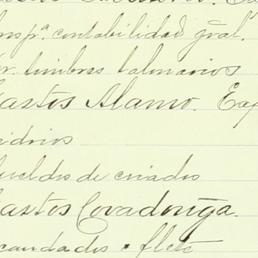 contabilidad gral.
timbres balnearios
Gastos Alamo.
vidrios
sueldos de criados
Gastos Covadonga.
candados y flete